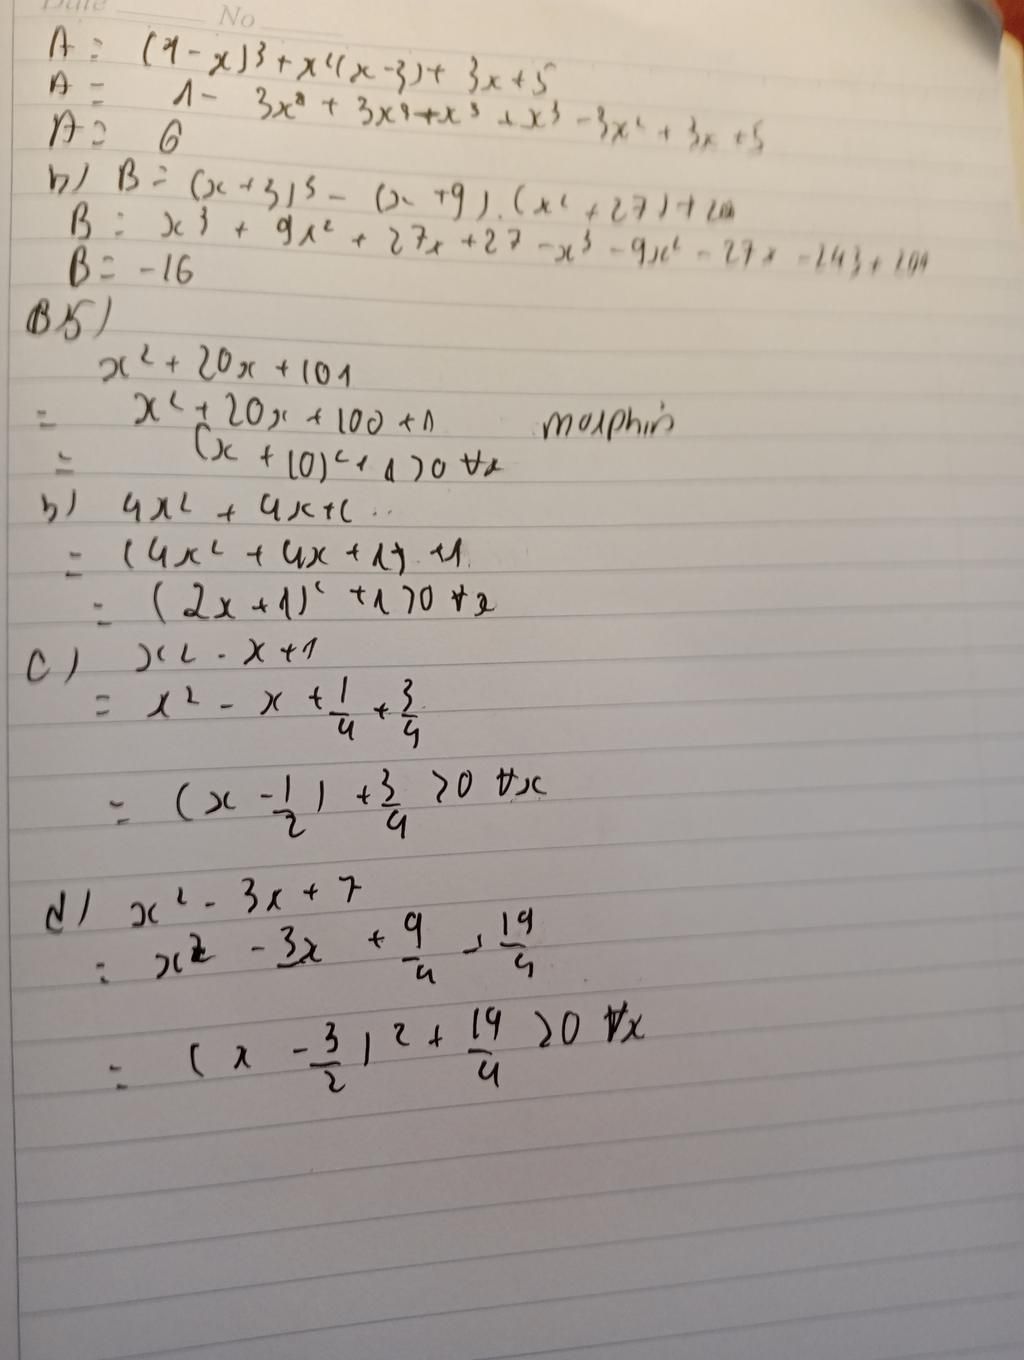 Date No
A = (1-x)³ + x²(x-3) + 3x + 5
A = 1 - 3x² + 3x² + x³ + x³ - 3x² + 3x + 5
A = 6
b) B = (x+3)³ - (x+9).(x²+27) +
B = x³ + 9x² + 27x + 27 - x³ - 9x² - 27x - 243 +
B = -16
B5)
x² + 20x + 101
= x² + 20x + 100 + 1
morphin
= (x + 10)² + 1 > 0 ∀x
b) 4x² + 4x + 2
= (4x² + 4x + 1) + 1
= (2x + 1)² + 1 > 0 ∀x
c) x² - x + 1
= x² - x + 1/4 + 3/4
= (x - 1/2) + 3/4 > 0 ∀x
d) x² - 3x + 7
= x² - 3x + 9/4 + 19/4
= (x - 3/2)² + 19/4 > 0 ∀x